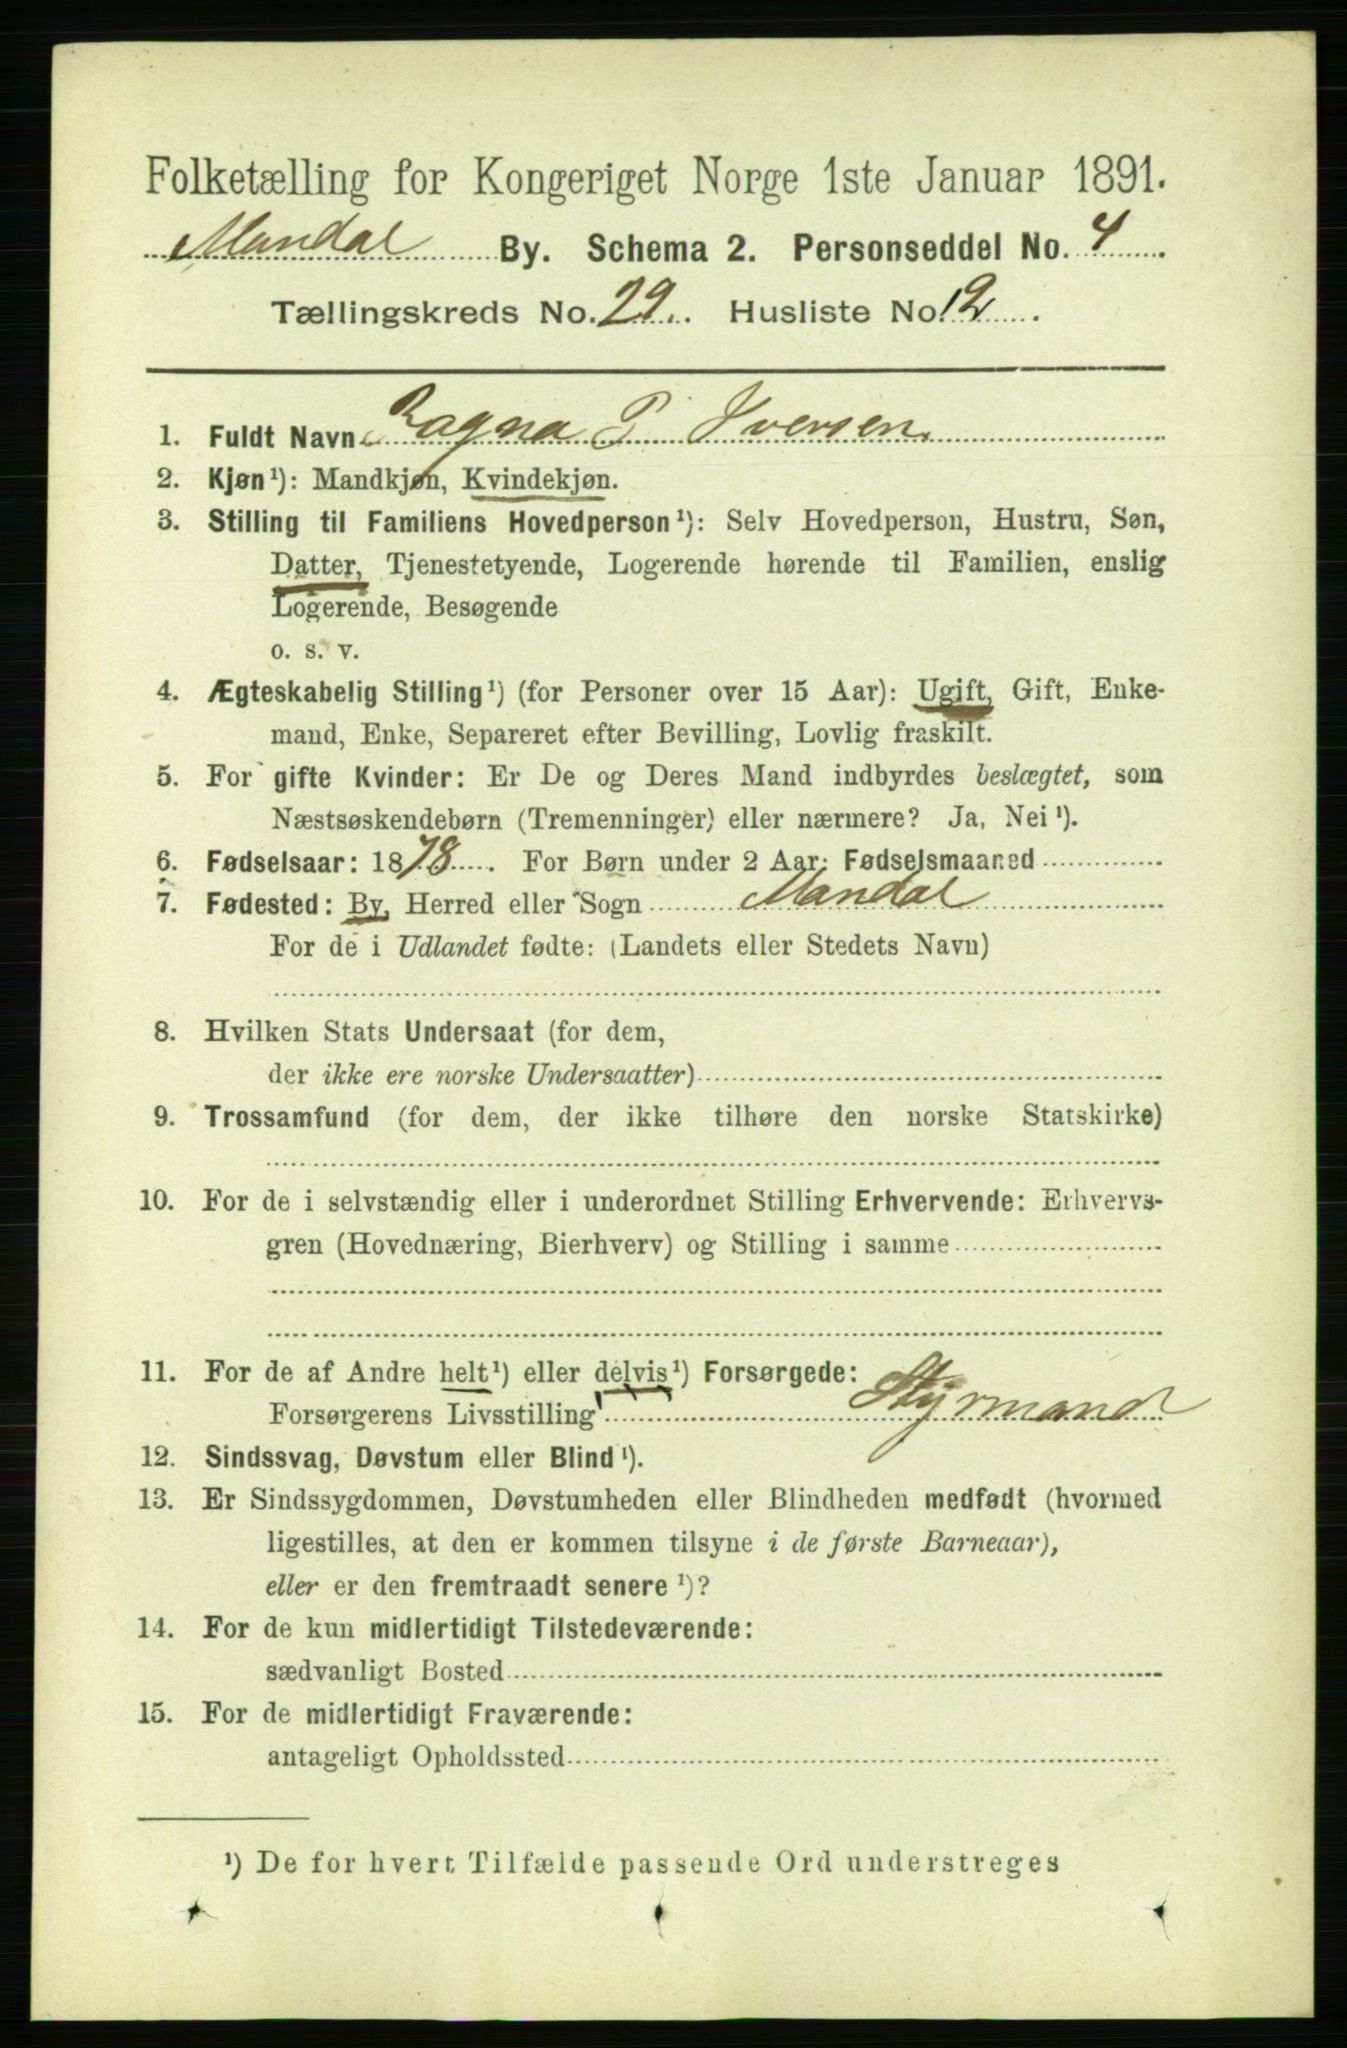 Folketælling for Kongeriget Norge 1ste Januar 1891.
Mandal By. Schema 2. Personseddel No. 4
Tællingskreds No. 29. Husliste No. 12
1. Fuldt Navn Ragna P Iversen
2. Kjøn¹): Mandkjøn, Kvindekjøn.
3. Stilling til Familiens Hovedperson¹): Selv Hovedperson, Hustru, Søn,
Datter, Tjenestetyende, Logerende hørende til Familien, enslig
Logerende, Besøgende
o. s. v.
4. Ægteskabelig Stilling¹) (for Personer over 15 Aar): Ugift, Gift, Enke-
mand, Enke, Separeret efter Bevilling, Lovlig fraskilt.
5. For gifte Kvinder: Er De og Deres Mand indbyrdes beslægtet, som
Næstsøskendebørn (Tremenninger) eller nærmere? Ja, Nei¹).
6. Fødselsaar: 1878. For Børn under 2 Aar: Fødselsmaaned
7. Fødested: By, Herred eller Sogn Mandal
For de i Udlandet fødte: (Landets eller Stedets Navn)
8. Hvilken Stats Undersaat (for dem,
der ikke ere norske Undersaatter)
9. Trossamfund (for dem, der ikke tilhøre den norske Statskirke)
10. For de i selvstændig eller i underordnet Stilling Erhvervende: Erhvervs-
gren (Hovednæring, Bierhverv) og Stilling i samme
11. For de af Andre helt¹) eller delvis¹) Forsørgede:
Forsørgerens Livsstilling Styrmand
12. Sindssvag, Døvstum eller Blind¹).
13. Er Sindssygdommen, Døvstumheden eller Blindheden medfødt (hvormed
ligestilles, at den er kommen tilsyne i de første Barneaar),
eller er den fremtraadt senere¹)?
14. For de kun midlertidigt Tilstedeværende:
sædvanligt Bosted
15. For de midlertidigt Fraværende:
antageligt Opholdssted
¹) De for hvert Tilfælde passende Ord understreges